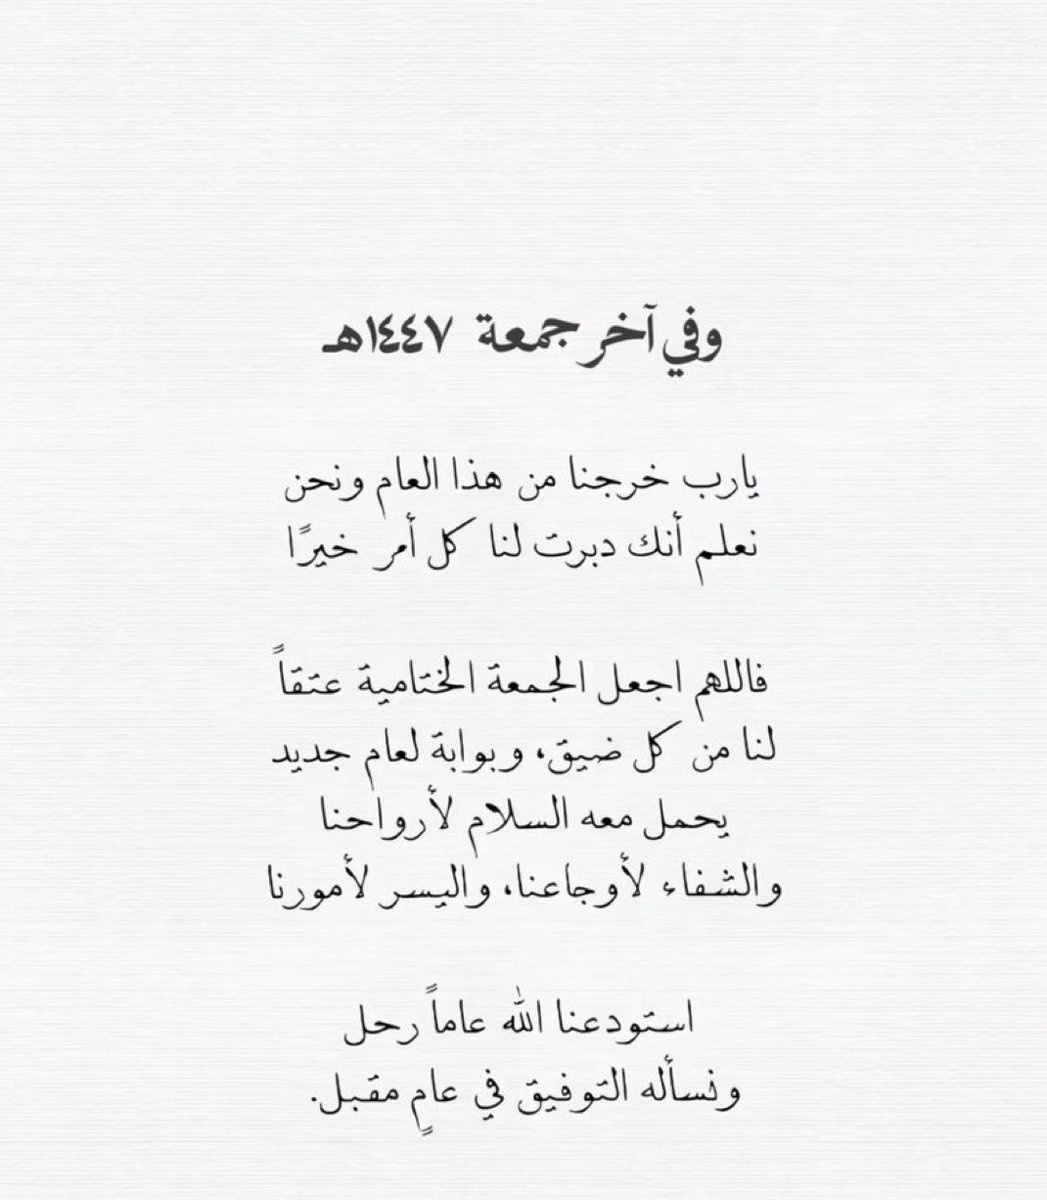 وفي آخر جمعة ١٤٤٧هـ
يارب خرجنا من هذا العام ونحن
نعلم أنك دبرت لنا كل أمر خيرًا
فاللهم اجعل الجمعة الختامية عتقاً
لنا من كل ضيق، وبوابة لعام جديد
يحمل معه السلام لأرواحنا
والشفاء لأوجاعنا، واليسر لأمورنا
استودعنا الله عاماً رحل
ونسأله التوفيق في عامٍ مقبل.